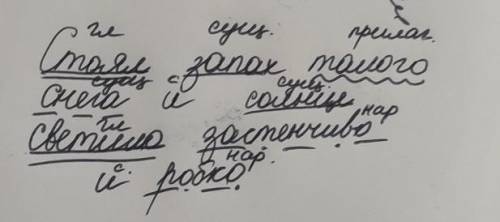 гл сущ. прилаг.
Стоял запах талого
сущ с сущ
снега и солнце
гл нар
светило застенчиво
с. нар.
и робко